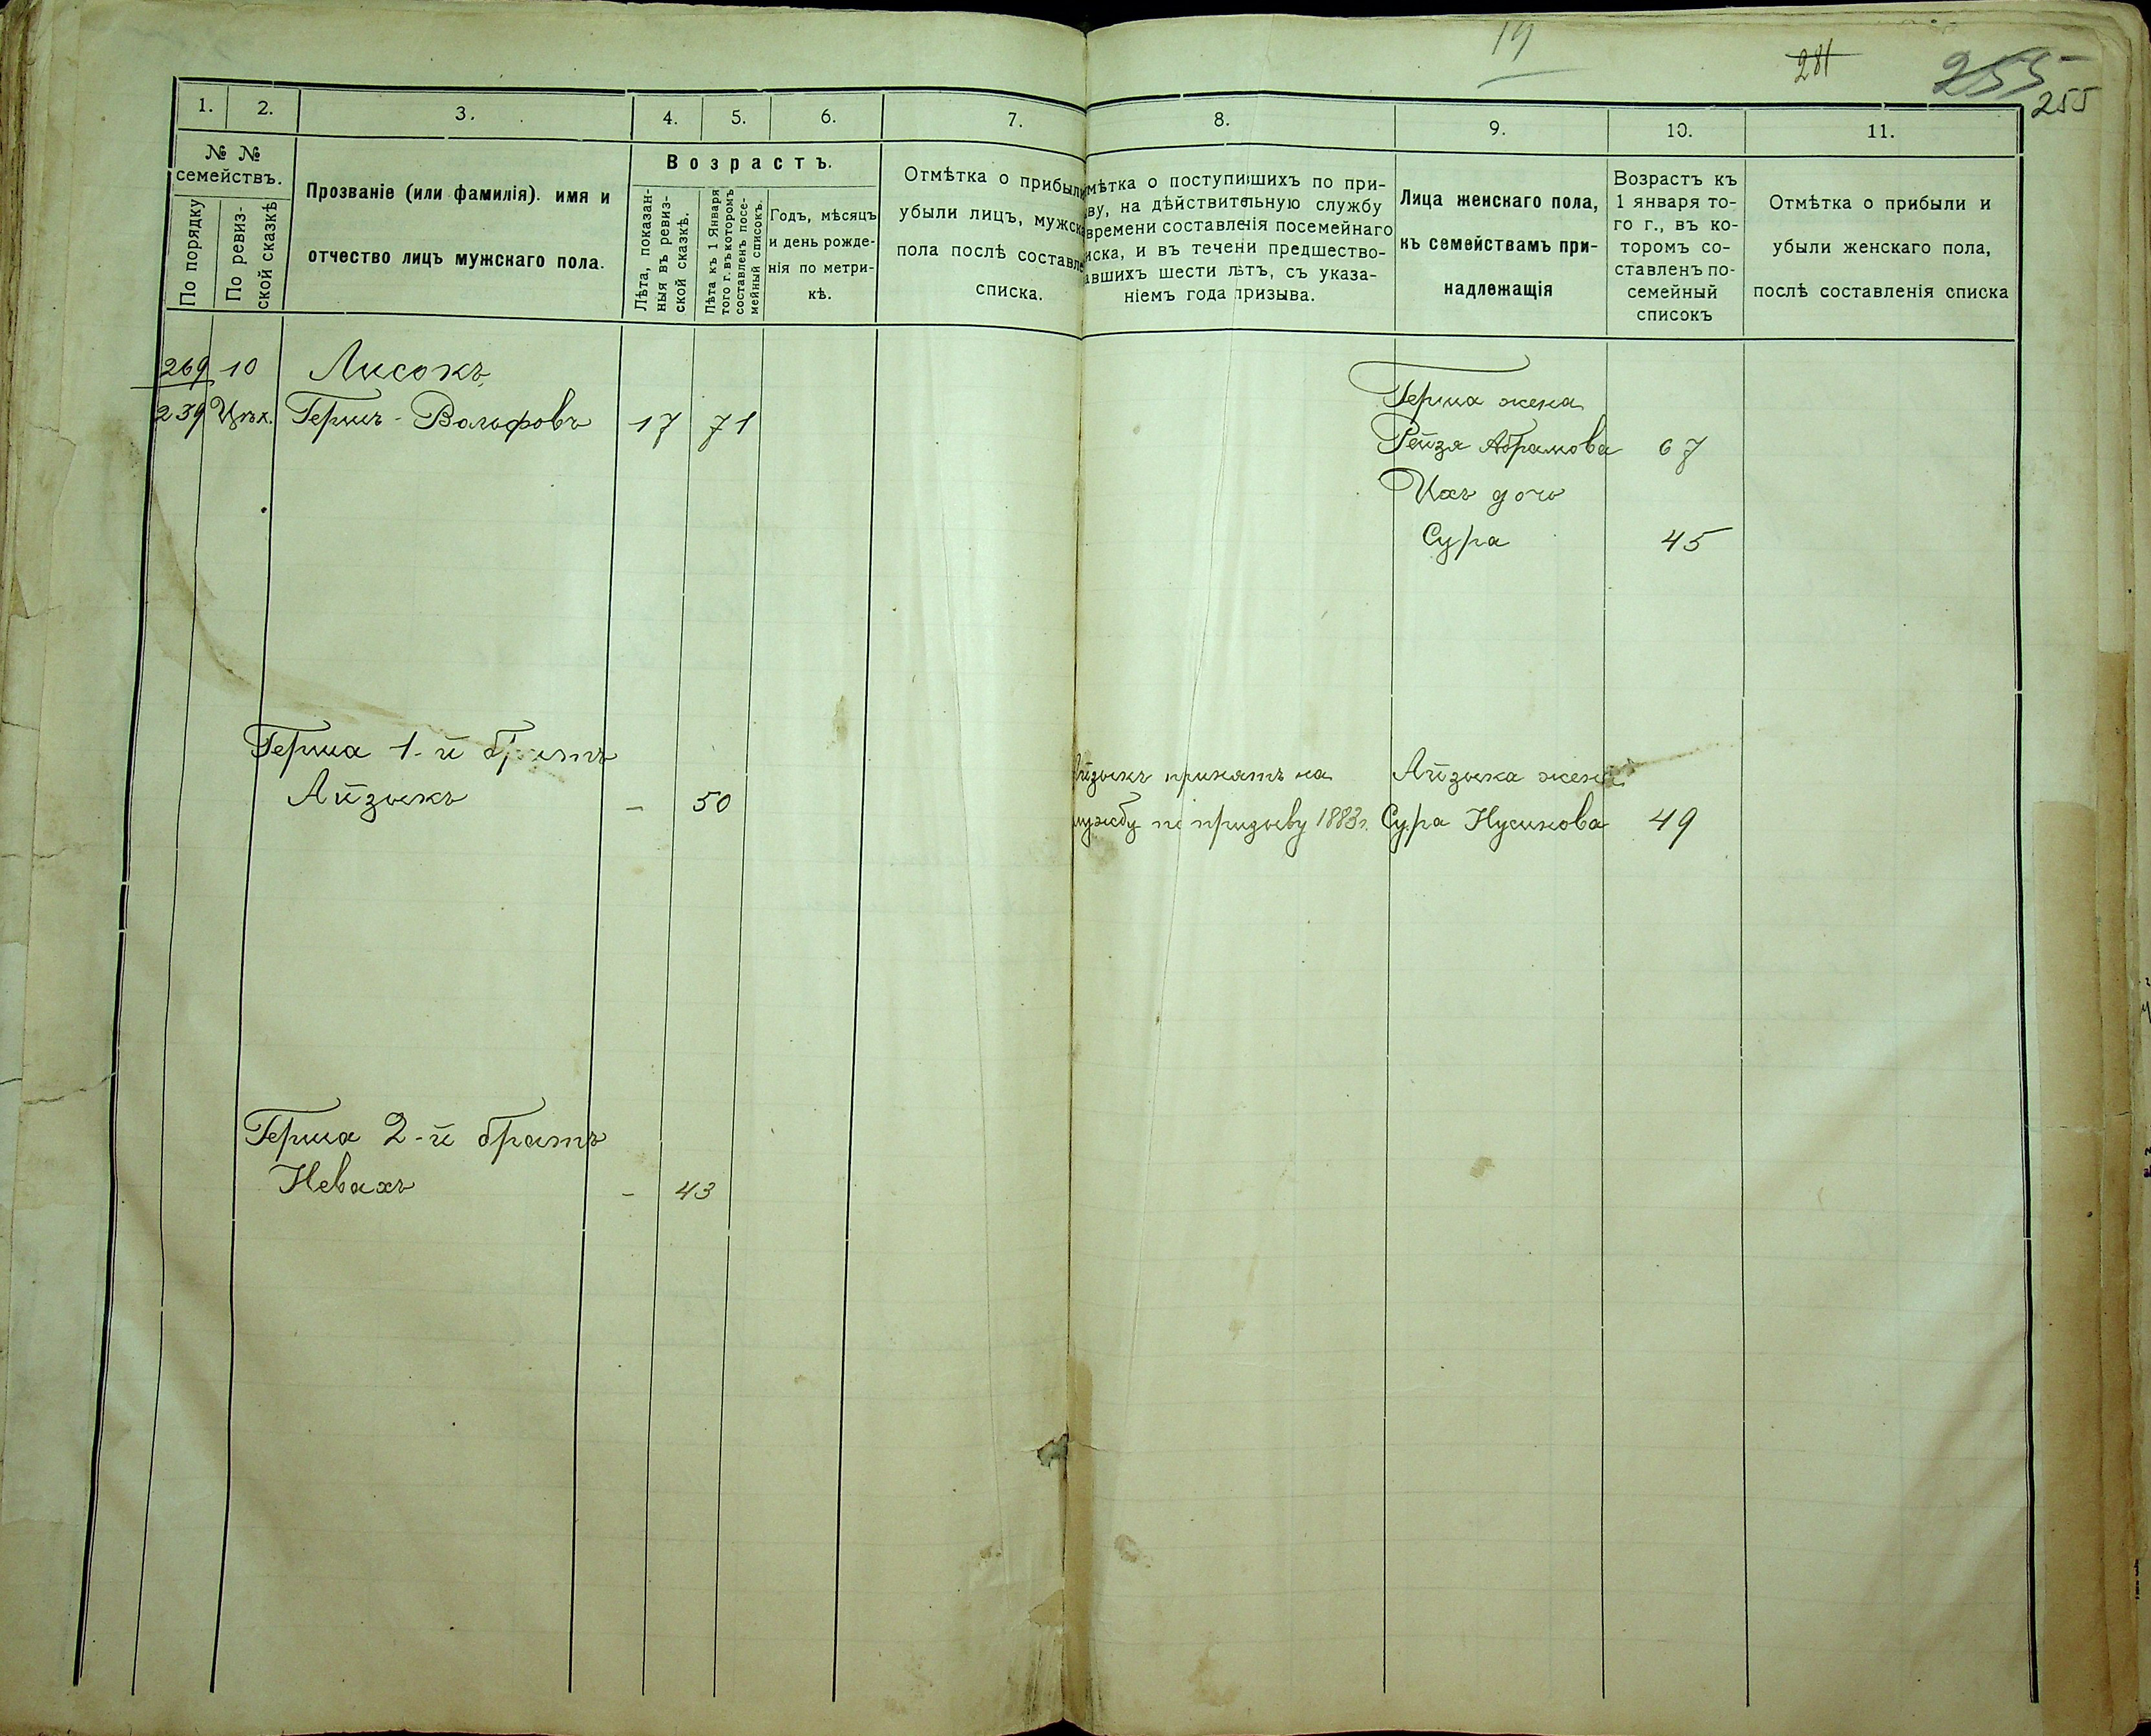 19
281
255
255
1.
2.
3.
4.
5.
6.
7.
8.
9.
10.
11.
№ №
семействъ.
По порядку
По ревиз-
ской сказкѣ
Прозваніе (или фамилія). имя и
отчество лицъ мужскаго пола.
Возрастъ.
Лѣта, показан-
ныя въ ревиз-
ской сказкѣ.
Лѣта къ 1 Января
того г. въ которомъ
составленъ посе-
мейный списокъ.
Годъ, мѣсяцъ
и день рожде-
нія по метри-
кѣ.
Отмѣтка о прибыли
убыли лицъ, мужска
пола послѣ составле
списка.
мѣтка о поступившихъ по при-
ву, на дѣйствительную службу
времени составленія посемейнаго
иска, и въ течени предшество-
авшихъ шести лѣтъ, съ указа-
ніемъ года призыва.
Лица женскаго пола,
къ семействамъ при-
надлежащія
Возрастъ къ
1 января то-
го г., въ ко-
торомъ со-
ставленъ по-
семейный
списокъ
Отмѣтка о прибыли и
убыли женскаго пола,
послѣ составленія списка
269 10 Лисокъ
239 Цех. Гершъ-Вольфовъ 17 71
Герша жена
Рейзя Абрамова 67
Ихъ дочь
Сура 45
Герша 1-й братъ
Айзыкъ - 50
Айзыкъ принятъ на
службу по призыву 1883 г.
Айзыка жена
Сура Нусинова 49
Герша 2-й братъ
Невахъ - 43